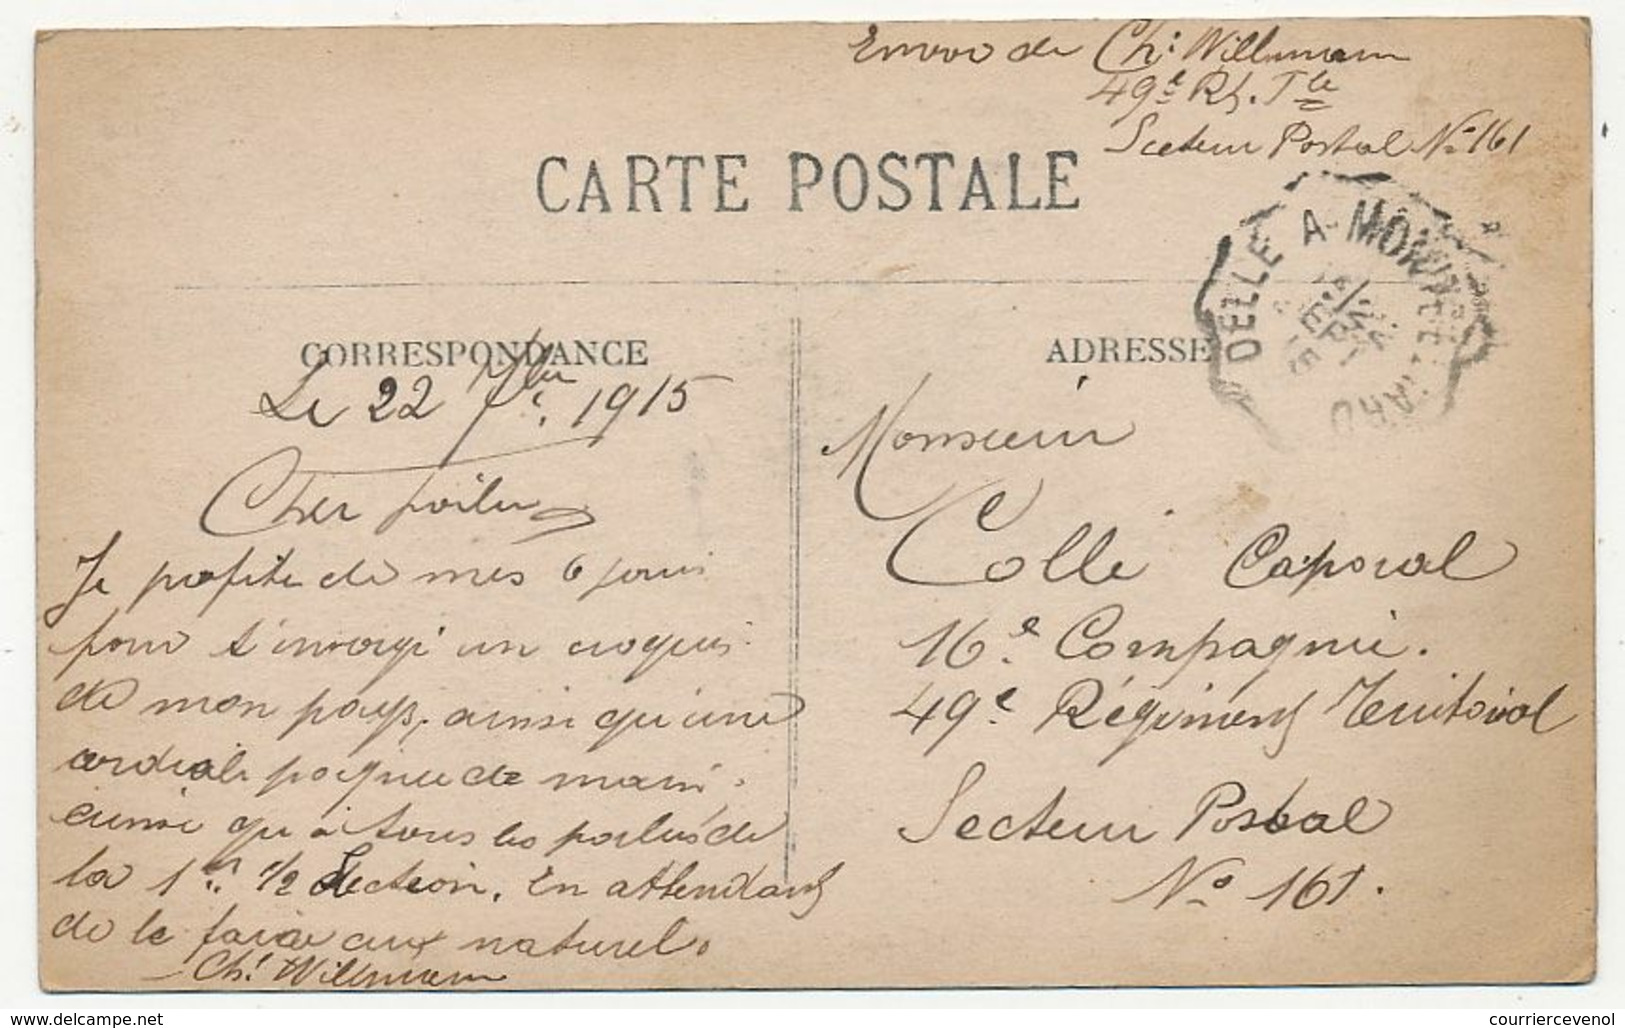 Envoi de Ch: Willmann
49e Rt. Tle
Secteur Postal No 161
CARTE POSTALE
DELLE A MONTBELIARD
CORRESPONDANCE
ADRESSE
Le 22 7bre 1915
Cher poilu
Je profite de mes 6 jours
pour t'envoyé un croquis
de mon pays, ainsi qu'une
cordiale poignée de main
ainsi qu'à tous les poilus de
la 1ère 1/2 Section. En attendant
de le faire aux naturel.
Ch: Willmann
Monsieur
Collé Caporal
16e Compagnie.
49e Régiment Territorial
Secteur Postal
No 161.
www.delcampe.net
courriercevenol